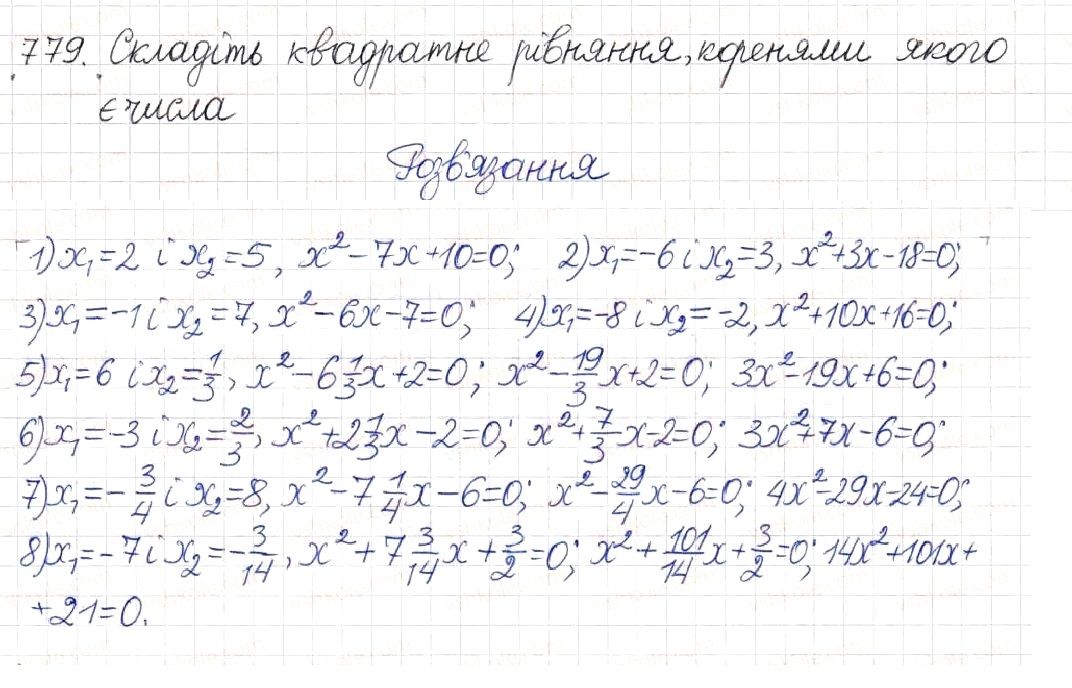 779. Складіть квадратне рівняння, коренями якого
є числа
Розв'язання
1) x₁=2 і x₂=5, x²-7x+10=0; 2) x₁=-6 і x₂=3, x²+3x-18=0;
3) x₁=-1 і x₂=7, x²-6x-7=0; 4) x₁=-8 і x₂=-2, x²+10x+16=0;
5) x₁=6 і x₂=1/3, x²-6 1/3x+2=0; x²-19/3x+2=0; 3x²-19x+6=0;
6) x₁=-3 і x₂=2/3, x²+2 1/3x-2=0; x²+7/3x-2=0; 3x²+7x-6=0;
7) x₁=-3/4 і x₂=8, x²-7 1/4x-6=0; x²-29/4x-6=0; 4x²-29x-24=0;
8) x₁=-7 і x₂=-3/14, x²+7 3/14x+3/2=0; x²+101/14x+3/2=0; 14x²+101x+
+21=0.